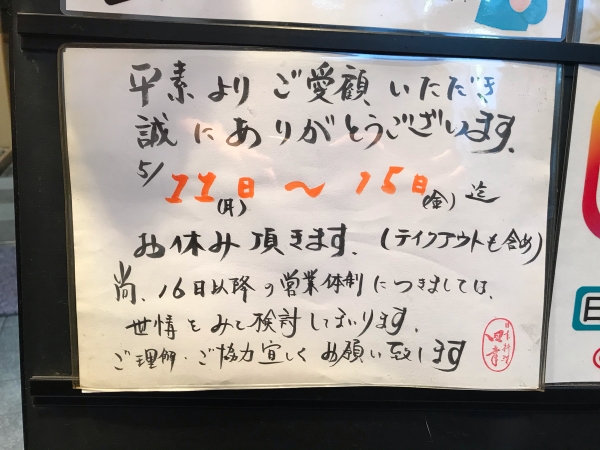 平素よりご愛顧いただき
誠にありがとうございます.
5/11日(月)～15日(金)迄
お休み頂きます.(テイクアウトも含め)
尚、16日以降の営業体制につきましては、
世情をみて検討してまいります.
ご理解・ご協力宜しくお願い致します
日本料理
日